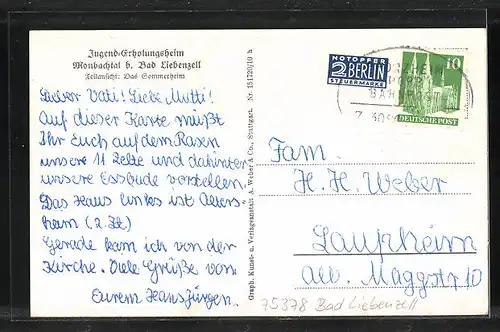 Jugend-Erholungsheim
Monbachtal b. Bad Liebenzell
Teilansicht: Das Sommerheim
Lieber Vati! Liebe Mutti!
Auf dieser Karte müßt
Ihr Euch auf dem Rasen
unsere 11 Zelte und dahinter
unsere Essbude vorstellen.
Das Haus links ist Altersheim
(z. Zt)
Gerade kam ich von der
Kirche. Viele Grüße von
Eurem Hansjürgen.
Graph. Kunst- u. Verlagsanstalt A. Weber & Co., Stuttgart. Nr. 151720/10 h
NOTOPFER
2 BERLIN
STEUERMARKE
10
DEUTSCHE POST
BAHN
Fam.
H. H. Weber
Laupheim
Maggstr 10
75378 Bad Liebenzell